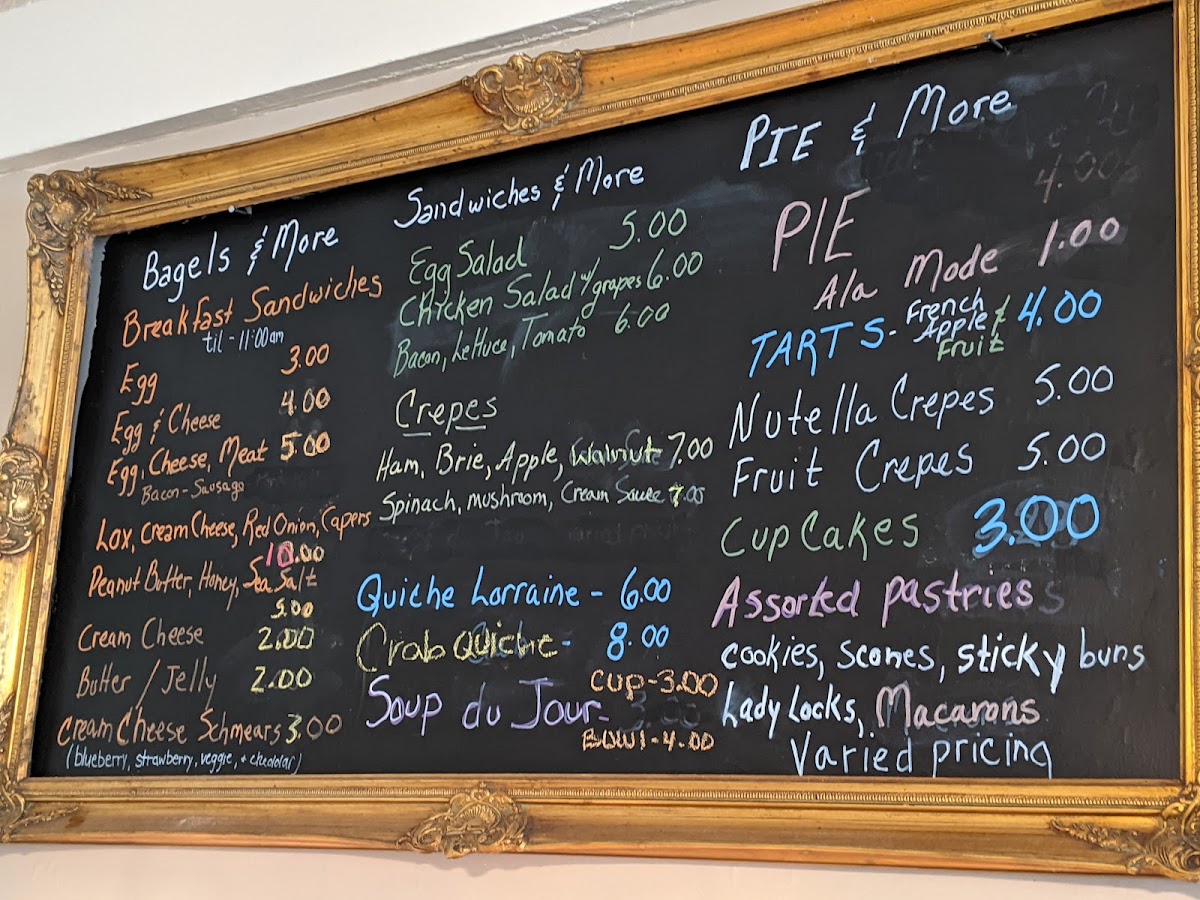 Bagels & More
Breakfast Sandwiches
til - 11:00am
Egg 3.00
Egg & Cheese 4.00
Egg, Cheese, Meat 5.00
Bacon - Sausage
Lox, Cream Cheese, Red Onion, Capers
10.00
Peanut Butter, Honey, Sea Salt
5.00
Cream Cheese 2.00
Butter / Jelly 2.00
Cream Cheese Schmears 3.00
(blueberry, strawberry, veggie, + cheddar)
Sandwiches & More
Egg Salad 5.00
Chicken Salad w/ grapes 6.00
Bacon, Lettuce, Tomato 6.00
Crepes
Ham, Brie, Apple, Walnut 7.00
Spinach, mushroom, Cream Sauce 7.00
Quiche Lorraine - 6.00
Crab Quiche - 8.00
Soup du Jour -
Cup - 3.00
Bowl - 4.00
PIE & More
4.00
PIE
Ala Mode 1.00
TARTS - French Apple & Fruit 4.00
Nutella Crepes 5.00
Fruit Crepes 5.00
Cup Cakes 3.00
Assorted pastries
cookies, scones, sticky buns
Lady Locks, Macarons
Varied pricing